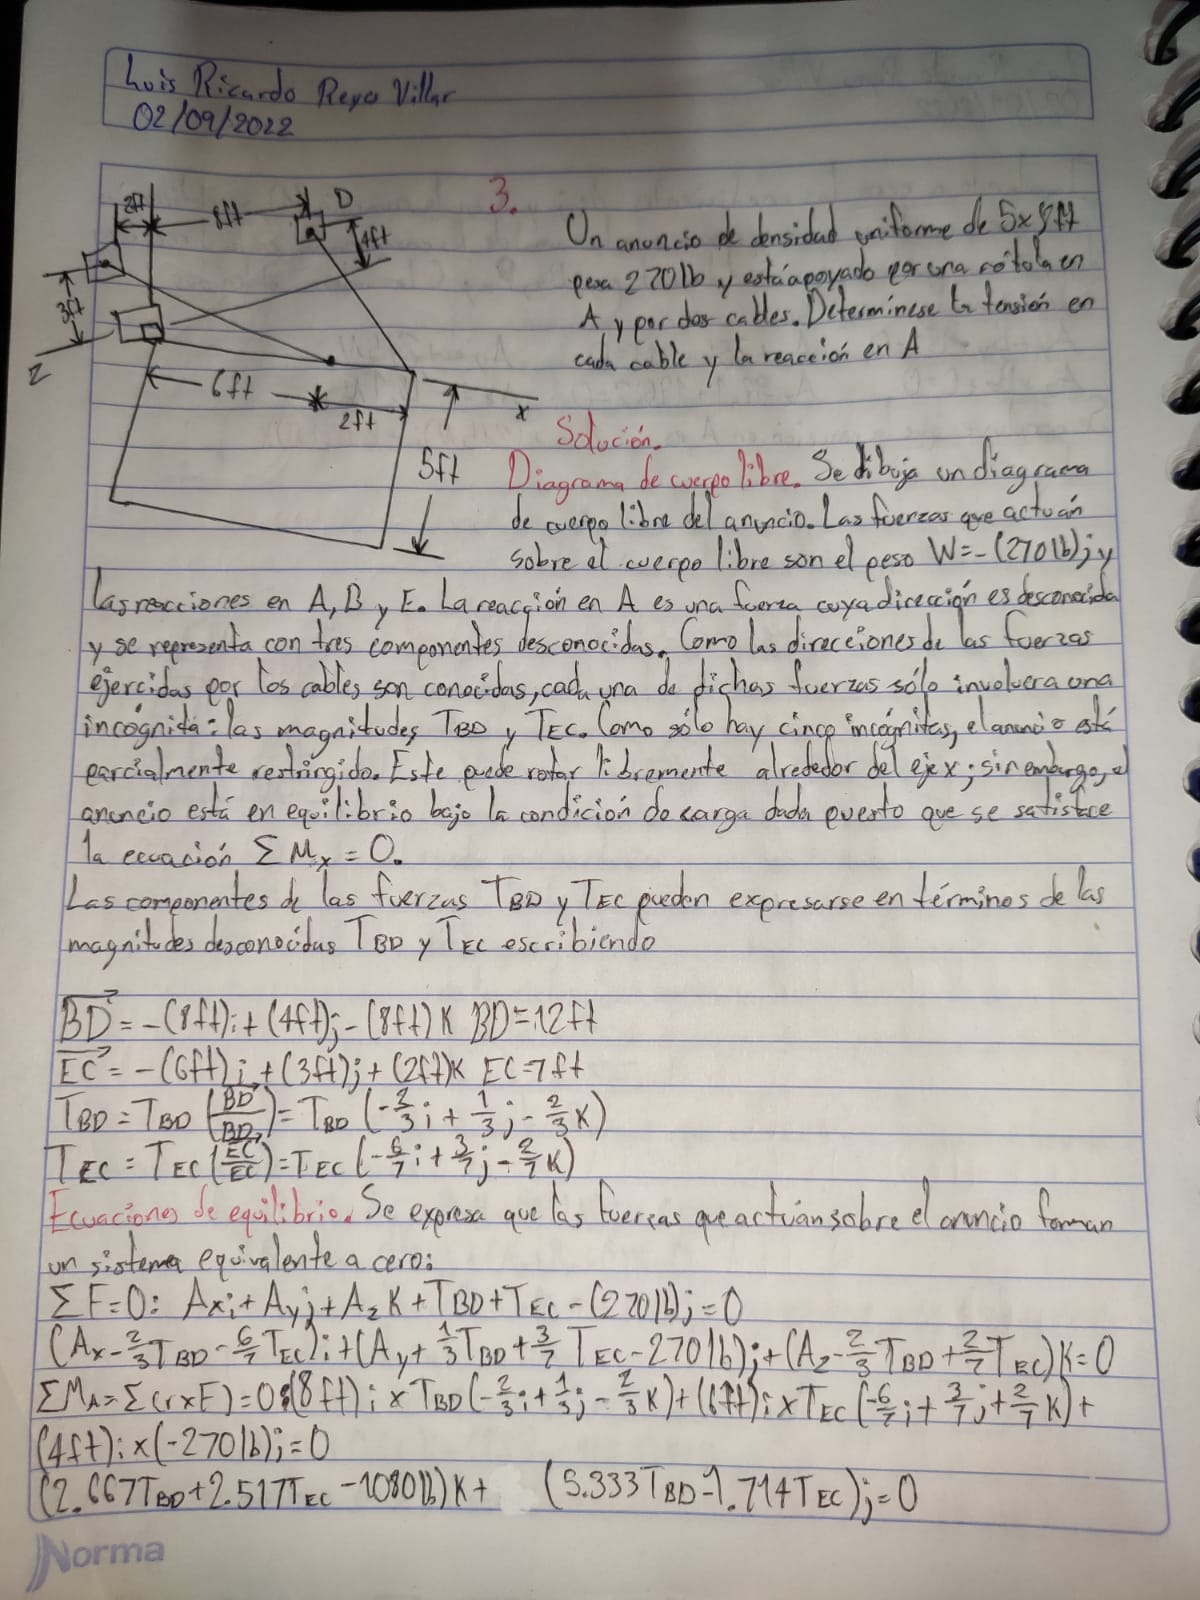 Luis Ricardo Reyes Villar
02/09/2022
3.
2ft
8ft
D
4ft
3ft
Z
6ft
2ft
x
5ft
Un anuncio de densidad uniforme de 5x8ft
pesa 270lb y está apoyado por una rótula en
A y por dos cables. Determínese la tensión en
cada cable y la reacción en A
Solución.
Diagrama de cuerpo libre. Se dibuja un diagrama
de cuerpo libre del anuncio. Las fuerzas que actuán
sobre el cuerpo libre son el peso W=-(270lb)j y
las reacciones en A, B y E. La reacción en A es una fuerza cuya dirección es desconocida
y se representa con tres componentes desconocidas. Como las direcciones de las fuerzas
ejercidas por los cables son conocidas, cada una de dichas fuerzas sólo involucra una
incógnita: las magnitudes TBD y TEC. Como sólo hay cinco incógnitas, el anuncio está
parcialmente restringido. Este puede rotar libremente alrededor del eje x; sin embargo, el
anuncio está en equilibrio bajo la condición de carga dada puesto que se satisface
la ecuación ΣMx = 0.
Las componentes de las fuerzas TBD y TEC pueden expresarse en términos de las
magnitudes desconocidas TBD y TEC escribiendo
BD = -(8ft)i + (4ft)j - (8ft)K BD=12ft
EC = -(6ft)i + (3ft)j + (2ft)K EC=7ft
TBD = TBD (BD/BD) = TBD (-2/3 i + 1/3 j - 2/3 K)
TEC = TEC (EC/EC) = TEC (-6/7 i + 3/7 j - 2/7 K)
Ecuaciones de equilibrio. Se expresa que las fuerzas que actúan sobre el anuncio forman
un sistema equivalente a cero:
ΣF=0: Axi + Ayj + AzK + TBD + TEC - (270lb)j = 0
(Ax - 2/3 TBD - 6/7 TEC)i + (Ay + 1/3 TBD + 3/7 TEC - 270lb)j + (Az - 2/3 TBD + 2/7 TEC)K = 0
ΣMA = Σ(rxF) = 0: (8ft)i x TBD (-2/3 i + 1/3 j - 2/3 K) + (6ft)i x TEC (-6/7 i + 3/7 j + 2/7 K) +
(4ft)i x (-270lb)j = 0
(2.667TBD + 2.517TEC - 1080lb)K + (5.333TBD - 1.714TEC)j = 0
Norma